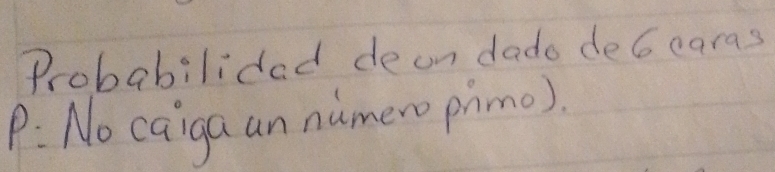 Probabilidad de un dado de 6 caras
P: No caiga un número primo).